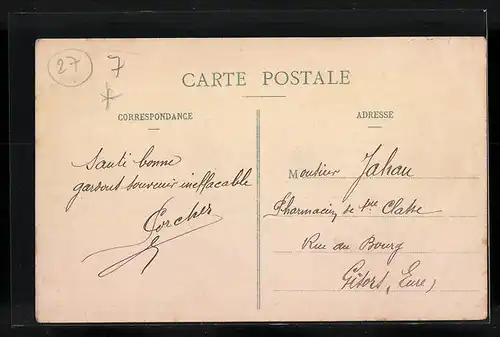 27
7
CARTE POSTALE
CORRESPONDANCE
Santé bonne
gardons souvenir ineffaçable
Porcher
ADRESSE
Monsieur Jahan
Pharmacien de 1ère Classe
Rue du Bourg
Gisors, (Eure)